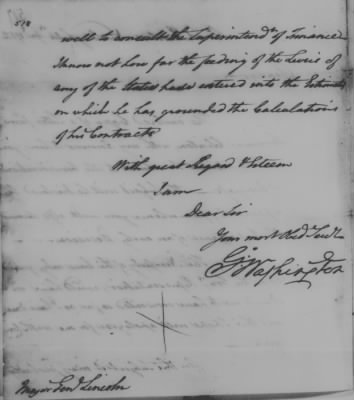 518
well to consult the Superintend.t of Finance
I know not how far the feeding of the Levies of
any of the States have entered into the Estimate
on which he has grounded the Calculations
of his Contracts
With great Regard & Esteem
I am
Dear Sir
Your most Obed. Serv.
G. Washington
Major Gen. Lincoln